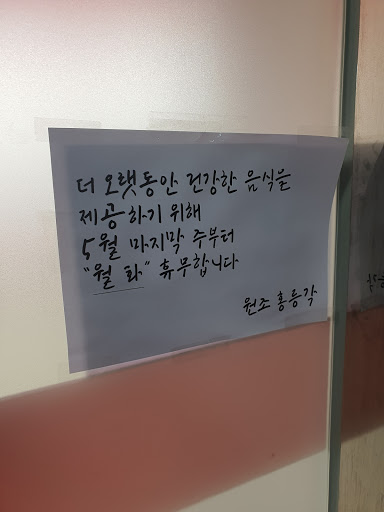 더 오랫동안 건강한 음식을
제공하기 위해
5월 마지막 주부터
"월 화" 휴무합니다
원조 홍등각